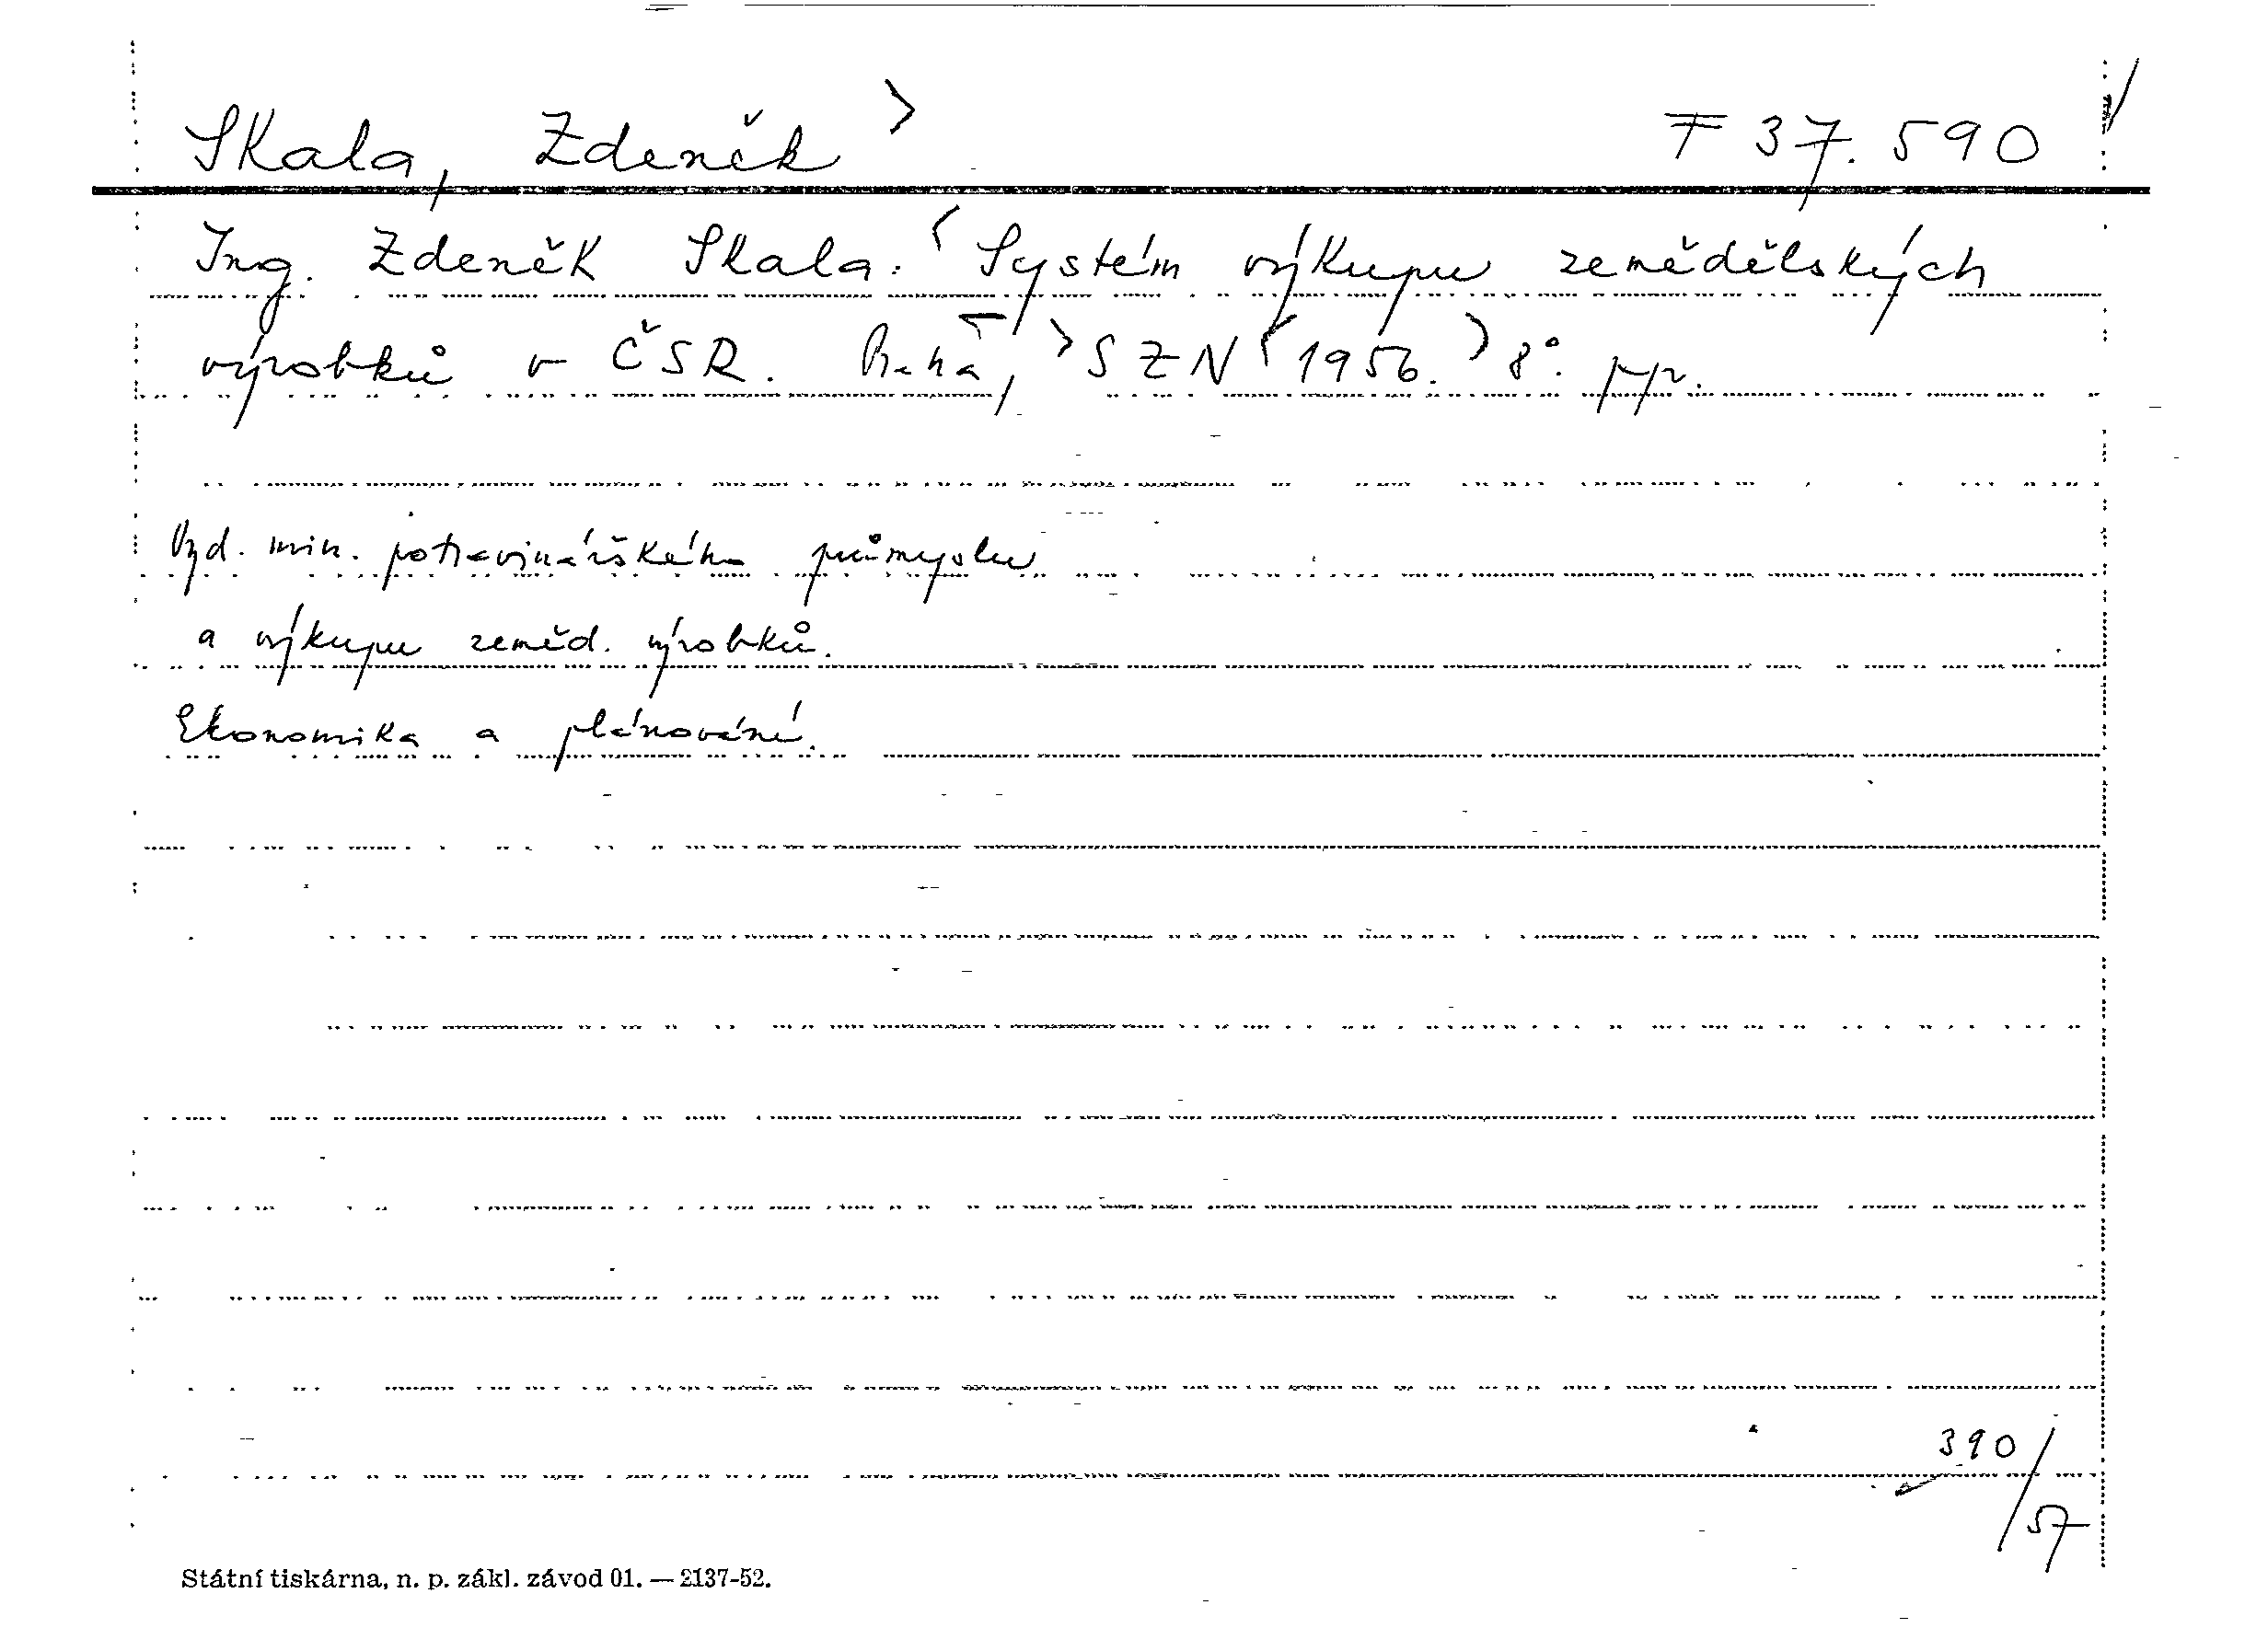 Skala, Zdeněk F 37.590
Ing. Zdeněk Skala: Systém výkupu zemědělských
výrobků v ČSR. Praha, SZN 1956. 8°. ppr.
Vyd. min. potravinářského průmyslu
a výkupu zeměd. výrobků.
Ekonomika a plánování.
390/57
Státní tiskárna, n. p. zákl. závod 01. — 2137-52.